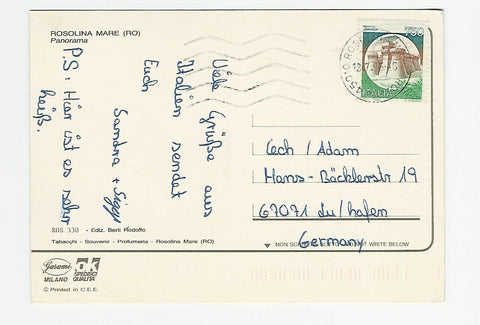 ROSOLINA MARE (RO)
Panorama
Viele Grüße aus
Italien sendet
Euch
Sandra + Siggi
P.S: Hier ist es sehr
heiß.
750
Cech / Adam
Hans-Böcklerstr 19
67071 Lu/hafen
Germany
ROS 330 - Ediz. Berti Rodolfo
Tabacchi - Souvenir - Profumeria - Rosolina Mare (RO)
NON SCR
T WRITE BELOW
Garami
MILANO
OK
SPEDISCI
QUALITÀ
© Printed in C.E.E.